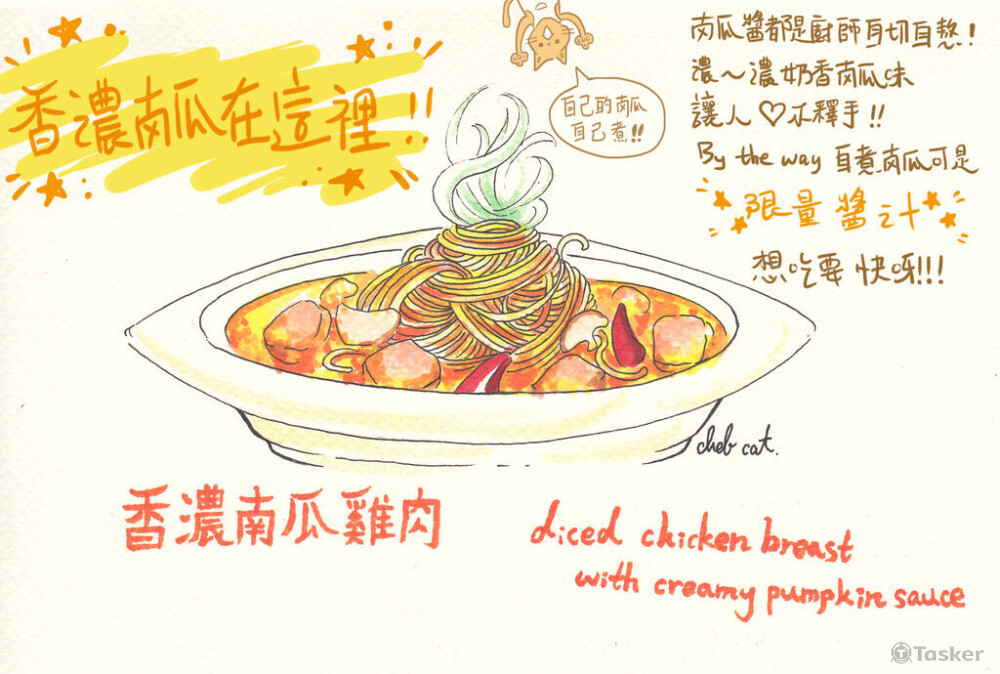 香濃南瓜在這裡!!
自己的南瓜
自己煮!!
南瓜醬都是廚師自切自熬!
濃～濃奶香南瓜味
讓人♡不釋手!!
By the way 自煮南瓜可是
限量醬汁
想吃要快呀!!!
chob cat.
香濃南瓜雞肉
diced chicken breast
with creamy pumpkin sauce
Tasker